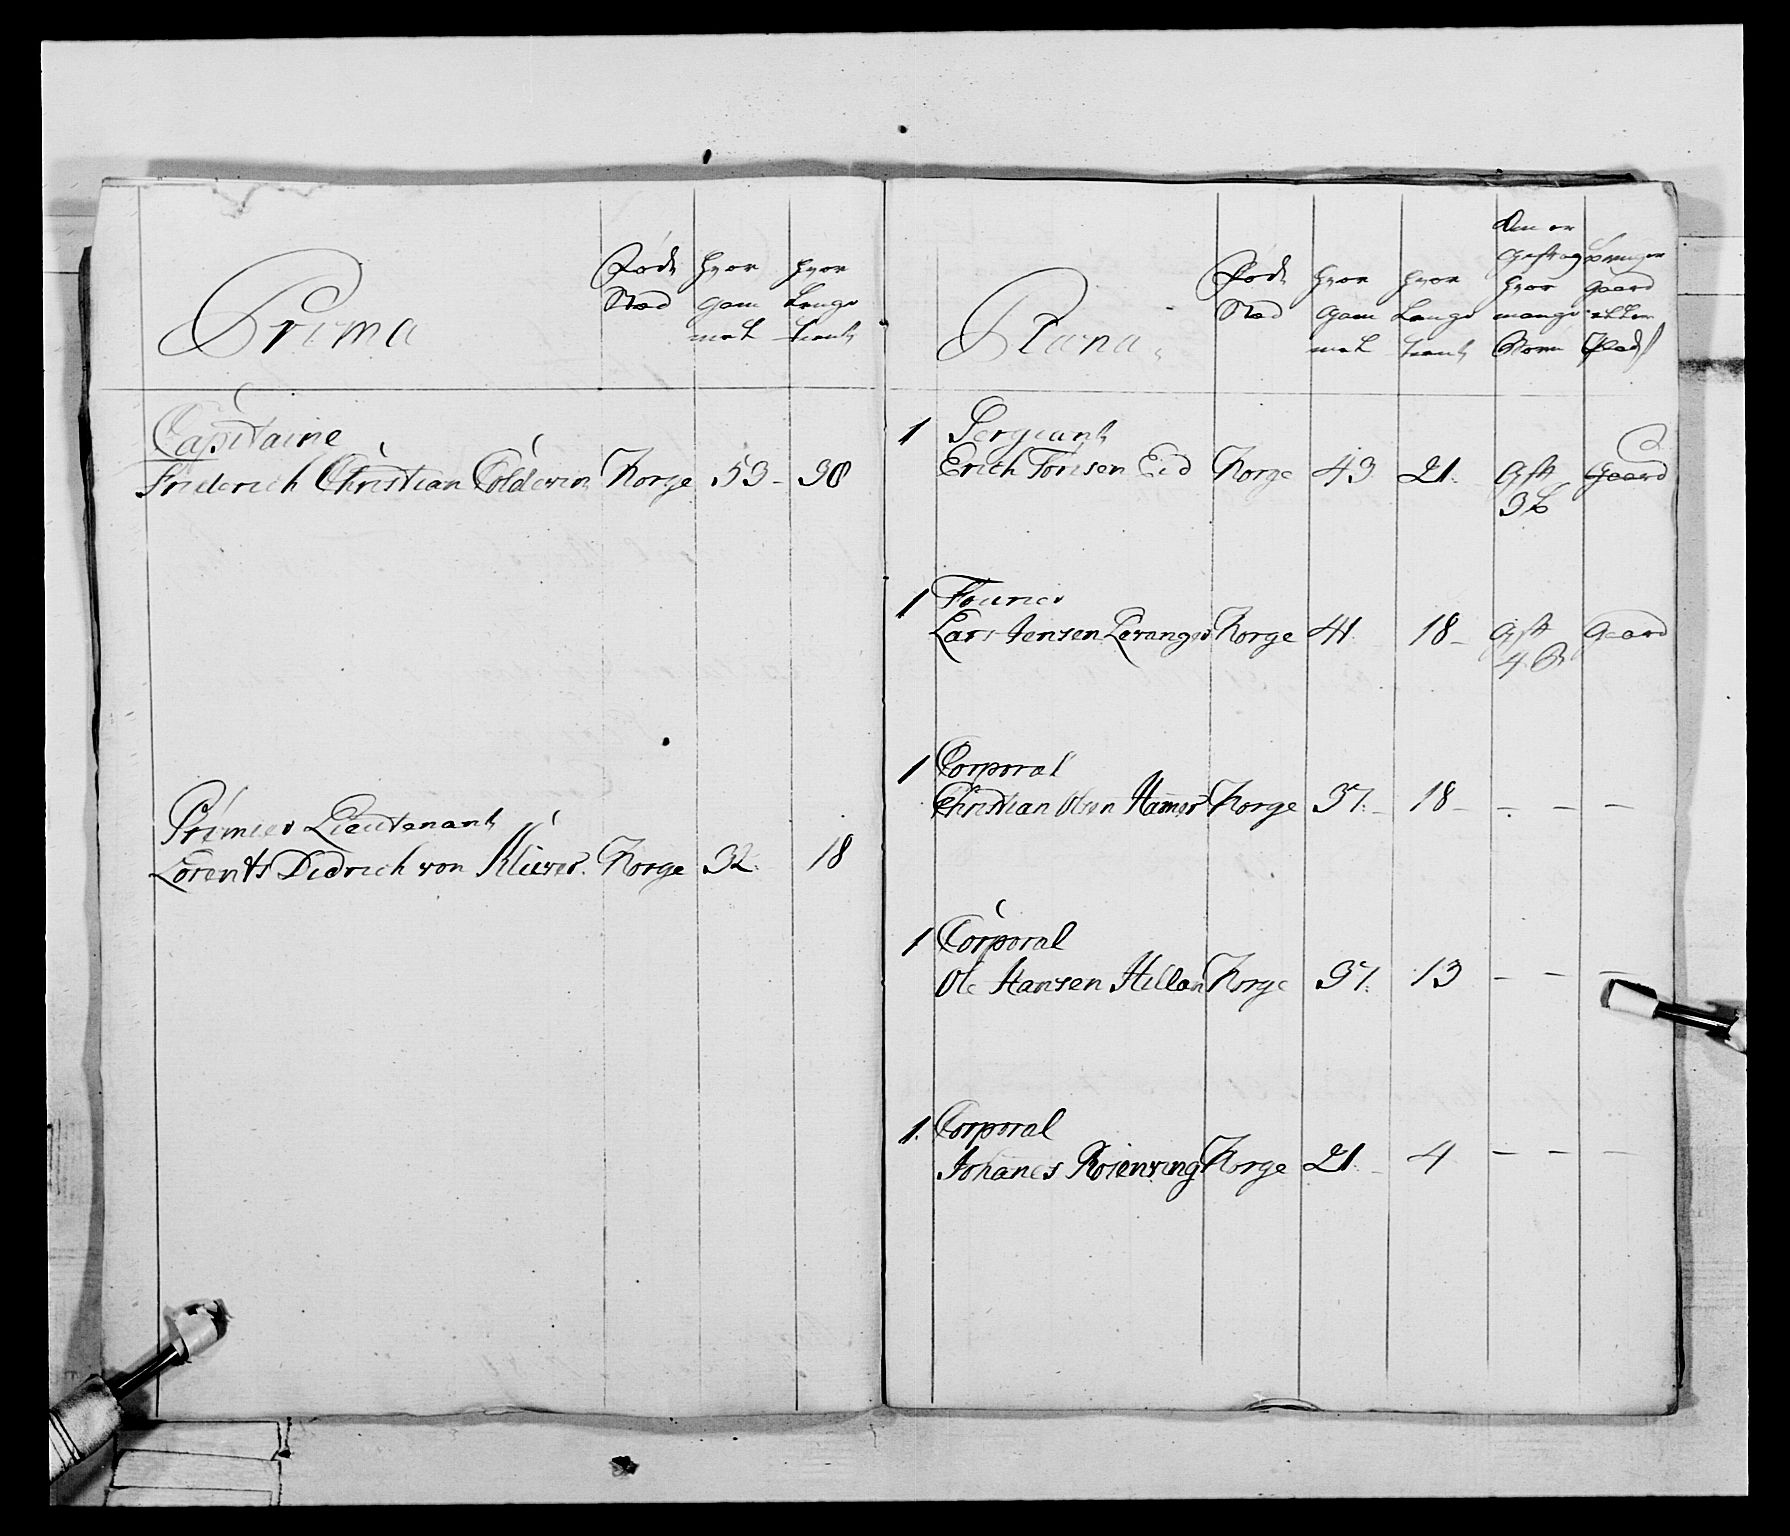 Prima
Føde Sted
hvor gammel
hvor Lenge tient
Capitaine
Friderich Christian Coldevin Norge 53 - 30
Premier Lieutenant
Lorents Didrich von Klüver. Norge 32. 18
Plana.
Føde Sted
hvor gammel
hvor Lenge tient
hvor mange Børn
gaard eller Plads
1 Sergeant
Erich Torisen Eid Norge 43 21. Gift gaard
3 b
1 Fourier
Lars Jensen Levanger Norge 41 18 - Gift gaard
4 B
1 Corporal
Christian Olsen Hamer Norge 37. - 18 - - - -
1 Corporal
Ole Hansen Hellan Norge 37. 13 - - -
1. Corporal
Johanes Rosenving Norge 21 - 4 - - -